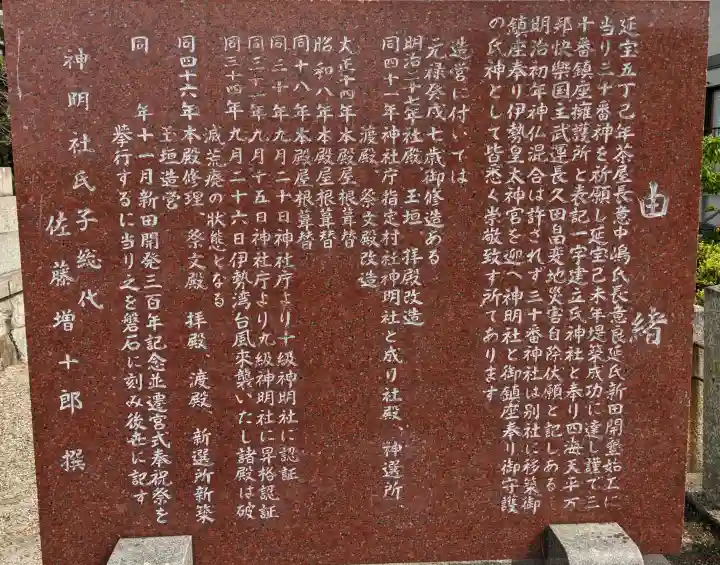 由緒
延宝五丁己年茶屋長意中嶋氏長意良延氏新田開墾始工に
当り三十番神を祈願し延宝己未年堤築成功に達し謹で三
十番鎮座擁護所と表記一宇建立氏神社と奉り四海天平万
邦快樂国主武運長久田畠変地災害自除伏願と記しある
明治初年神仏混合は許されず三十番神社は別社に移築御
鎮座奉り伊勢皇太神宮を迎へ神明社と御鎮座奉り御守護
の氏神として皆悉く崇敬致す所であります
造営に付いては
元禄癸戌七歳御修造ある
明治二十七年社殿、玉垣、拝殿改造
同四十一年神社庁指定村社神明社と成り社殿、神選所、
渡殿、祭文殿改造
大正十四年本殿屋根葺替
昭和八年本殿屋根葺替
同十八年本殿屋根葺替
同三十年九月二十日神社庁より十級神明社に認証
同三十一年九月十五日神社庁より九級神明社に昇格認証
同三十四年九月二十六日伊勢湾台風来襲いたし諸殿は破
滅荒廃の状態となる
同四十六年本殿修理、祭文殿 拝殿 渡殿 新選所新築
玉垣造営
同 年十一月新田開発三百年記念並遷宮式奉祝祭を
挙行するに当り之を磐石に刻み後世に記す
神明社氏子総代
佐藤増十郎 撰